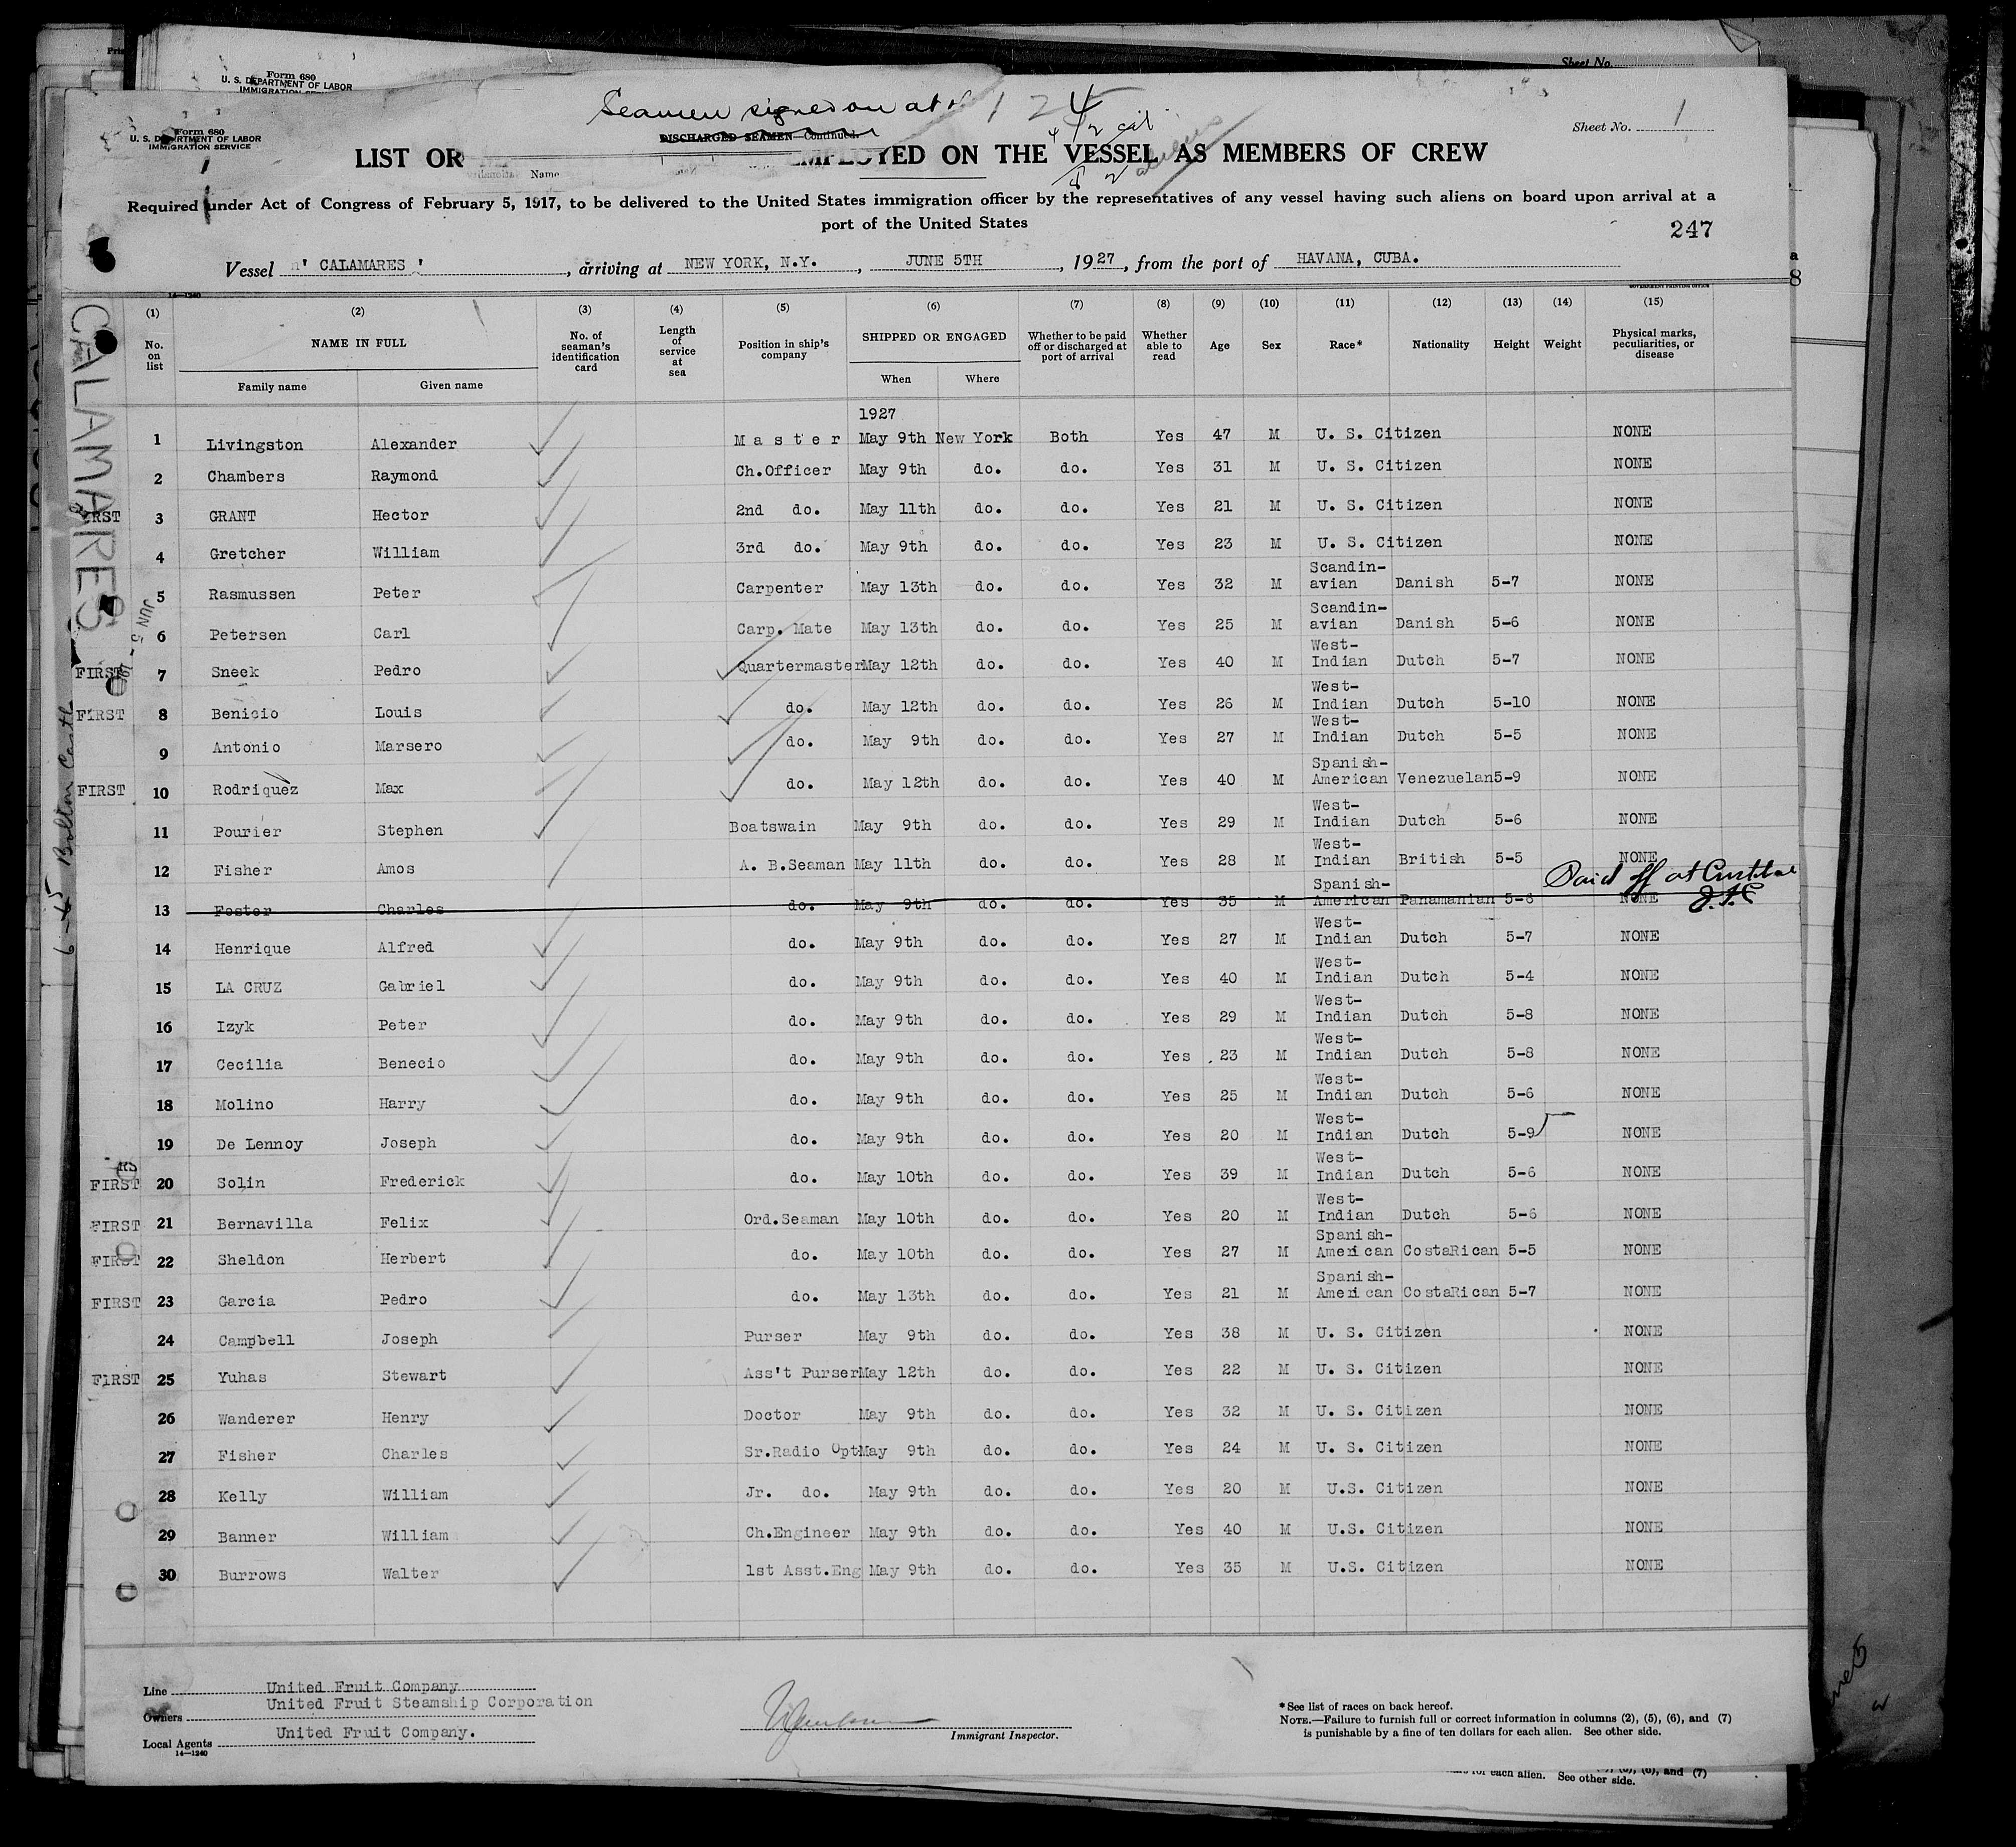 Form 680
U. S. DEPARTMENT OF LABOR
Form 680
U. S. DEPARTMENT OF LABOR
IMMIGRATION SERVICE
Seamen signed on at
DISCHARGED SEAMEN—Continued.
Sheet No. 1
LIST OR EMPLOYED ON THE VESSEL AS MEMBERS OF CREW
Name
Required under Act of Congress of February 5, 1917, to be delivered to the United States immigration officer by the representatives of any vessel having such aliens on board upon arrival at a
port of the United States
247
Vessel ' CALAMARES ' , arriving at NEW YORK, N.Y. , JUNE 5TH , 1927, from the port of HAVANA, CUBA.
(1) (2) (3) (4) (5) (6) (7) (8) (9) (10) (11) (12) (13) (14) (15)
No. on list NAME IN FULL Family name Given name No. of seaman's identification card Length of service at sea Position in ship's company SHIPPED OR ENGAGED When Where Whether to be paid off or discharged at port of arrival Whether able to read Age Sex Race* Nationality Height Weight Physical marks, peculiarities, or disease
CALAMARES
1927
1 Livingston Alexander Master May 9th New York Both Yes 47 M U. S. Citizen NONE
2 Chambers Raymond Ch.Officer May 9th do. do. Yes 31 M U. S. Citizen NONE
3 GRANT Hector 2nd do. May 11th do. do. Yes 21 M U. S. Citizen NONE
4 Gretcher William 3rd do. May 9th do. do. Yes 23 M U. S. Citizen NONE
5 Rasmussen Peter Carpenter May 13th do. do. Yes 32 M Scandin-avian Danish 5-7 NONE
6 Petersen Carl Carp. Mate May 13th do. do. Yes 25 M Scandin-avian Danish 5-6 NONE
FIRST 7 Sneek Pedro Quartermaster May 12th do. do. Yes 40 M West-Indian Dutch 5-7 NONE
FIRST 8 Benicio Louis do. May 12th do. do. Yes 26 M West-Indian Dutch 5-10 NONE
9 Antonio Marsero do. May 9th do. do. Yes 27 M West-Indian Dutch 5-5 NONE
FIRST 10 Rodriquez Max do. May 12th do. do. Yes 40 M Spanish-American Venezuelan 5-9 NONE
11 Pourier Stephen Boatswain May 9th do. do. Yes 29 M West-Indian Dutch 5-6 NONE
12 Fisher Amos A. B.Seaman May 11th do. do. Yes 28 M West-Indian British 5-5 NONE
Paid off at Cristobal
13 Foster Charles do. May 9th do. do. Yes 35 M Spanish-American Panamanian 5-8 NONE
14 Henrique Alfred do. May 9th do. do. Yes 27 M West-Indian Dutch 5-7 NONE
15 LA CRUZ Gabriel do. May 9th do. do. Yes 40 M West-Indian Dutch 5-4 NONE
16 Izyk Peter do. May 9th do. do. Yes 29 M West-Indian Dutch 5-8 NONE
17 Cecilia Benecio do. May 9th do. do. Yes 23 M West-Indian Dutch 5-8 NONE
18 Molino Harry do. May 9th do. do. Yes 25 M West-Indian Dutch 5-6 NONE
19 De Lennoy Joseph do. May 9th do. do. Yes 20 M West-Indian Dutch 5-9 NONE
FIRST 20 Solin Frederick do. May 10th do. do. Yes 39 M West-Indian Dutch 5-6 NONE
FIRST 21 Bernavilla Felix Ord.Seaman May 10th do. do. Yes 20 M West-Indian Dutch 5-6 NONE
FIRST 22 Sheldon Herbert do. May 10th do. do. Yes 27 M Spanish-American CostaRican 5-5 NONE
FIRST 23 Garcia Pedro do. May 13th do. do. Yes 21 M Spanish-American CostaRican 5-7 NONE
24 Campbell Joseph Purser May 9th do. do. Yes 38 M U. S. Citizen NONE
FIRST 25 Yuhas Stewart Ass't Purser May 12th do. do. Yes 22 M U. S. Citizen NONE
26 Wanderer Henry Doctor May 9th do. do. Yes 32 M U. S. Citizen NONE
27 Fisher Charles Sr.Radio Opt May 9th do. do. Yes 24 M U. S. Citizen NONE
28 Kelly William Jr. do. May 9th do. do. Yes 20 M U.S. Citizen NONE
29 Banner William Ch.Engineer May 9th do. do. Yes 40 M U.S. Citizen NONE
30 Burrows Walter 1st Asst.Eng May 9th do. do. Yes 35 M U.S. Citizen NONE
Line United Fruit Company
Owners United Fruit Steamship Corporation
Local Agents United Fruit Company.
14—1240
Immigrant Inspector.
*See list of races on back hereof.
NOTE.—Failure to furnish full or correct information in columns (2), (5), (6), and (7)
is punishable by a fine of ten dollars for each alien. See other side.
for each alien. See other side.